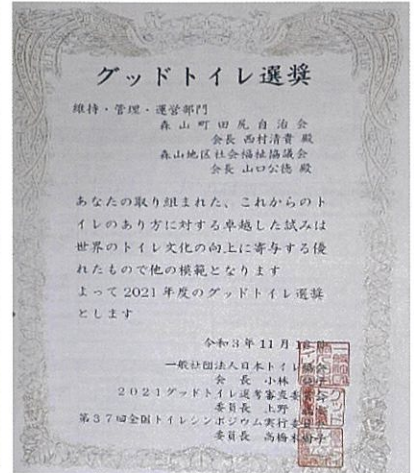 グッドトイレ選奨
維持・管理・運営部門
森山町田尻自治会
会長 西村清貴 殿
森山地区社会福祉協議会
会長 山口公徳 殿
あなたの取り組まれた、これからのト
イレのあり方に対する卓越した試みは
世界のトイレ文化の向上に寄与する優
れたもので他の模範となります
よって2021年度のグッドトイレ選奨
とします
令和3年11月
一般社団法人日本トイレ協会
会長 小林
2021グッドトイレ選考審査委
委員長 上野
第37回全国トイレシンポジウム実行委
委員長 高橋